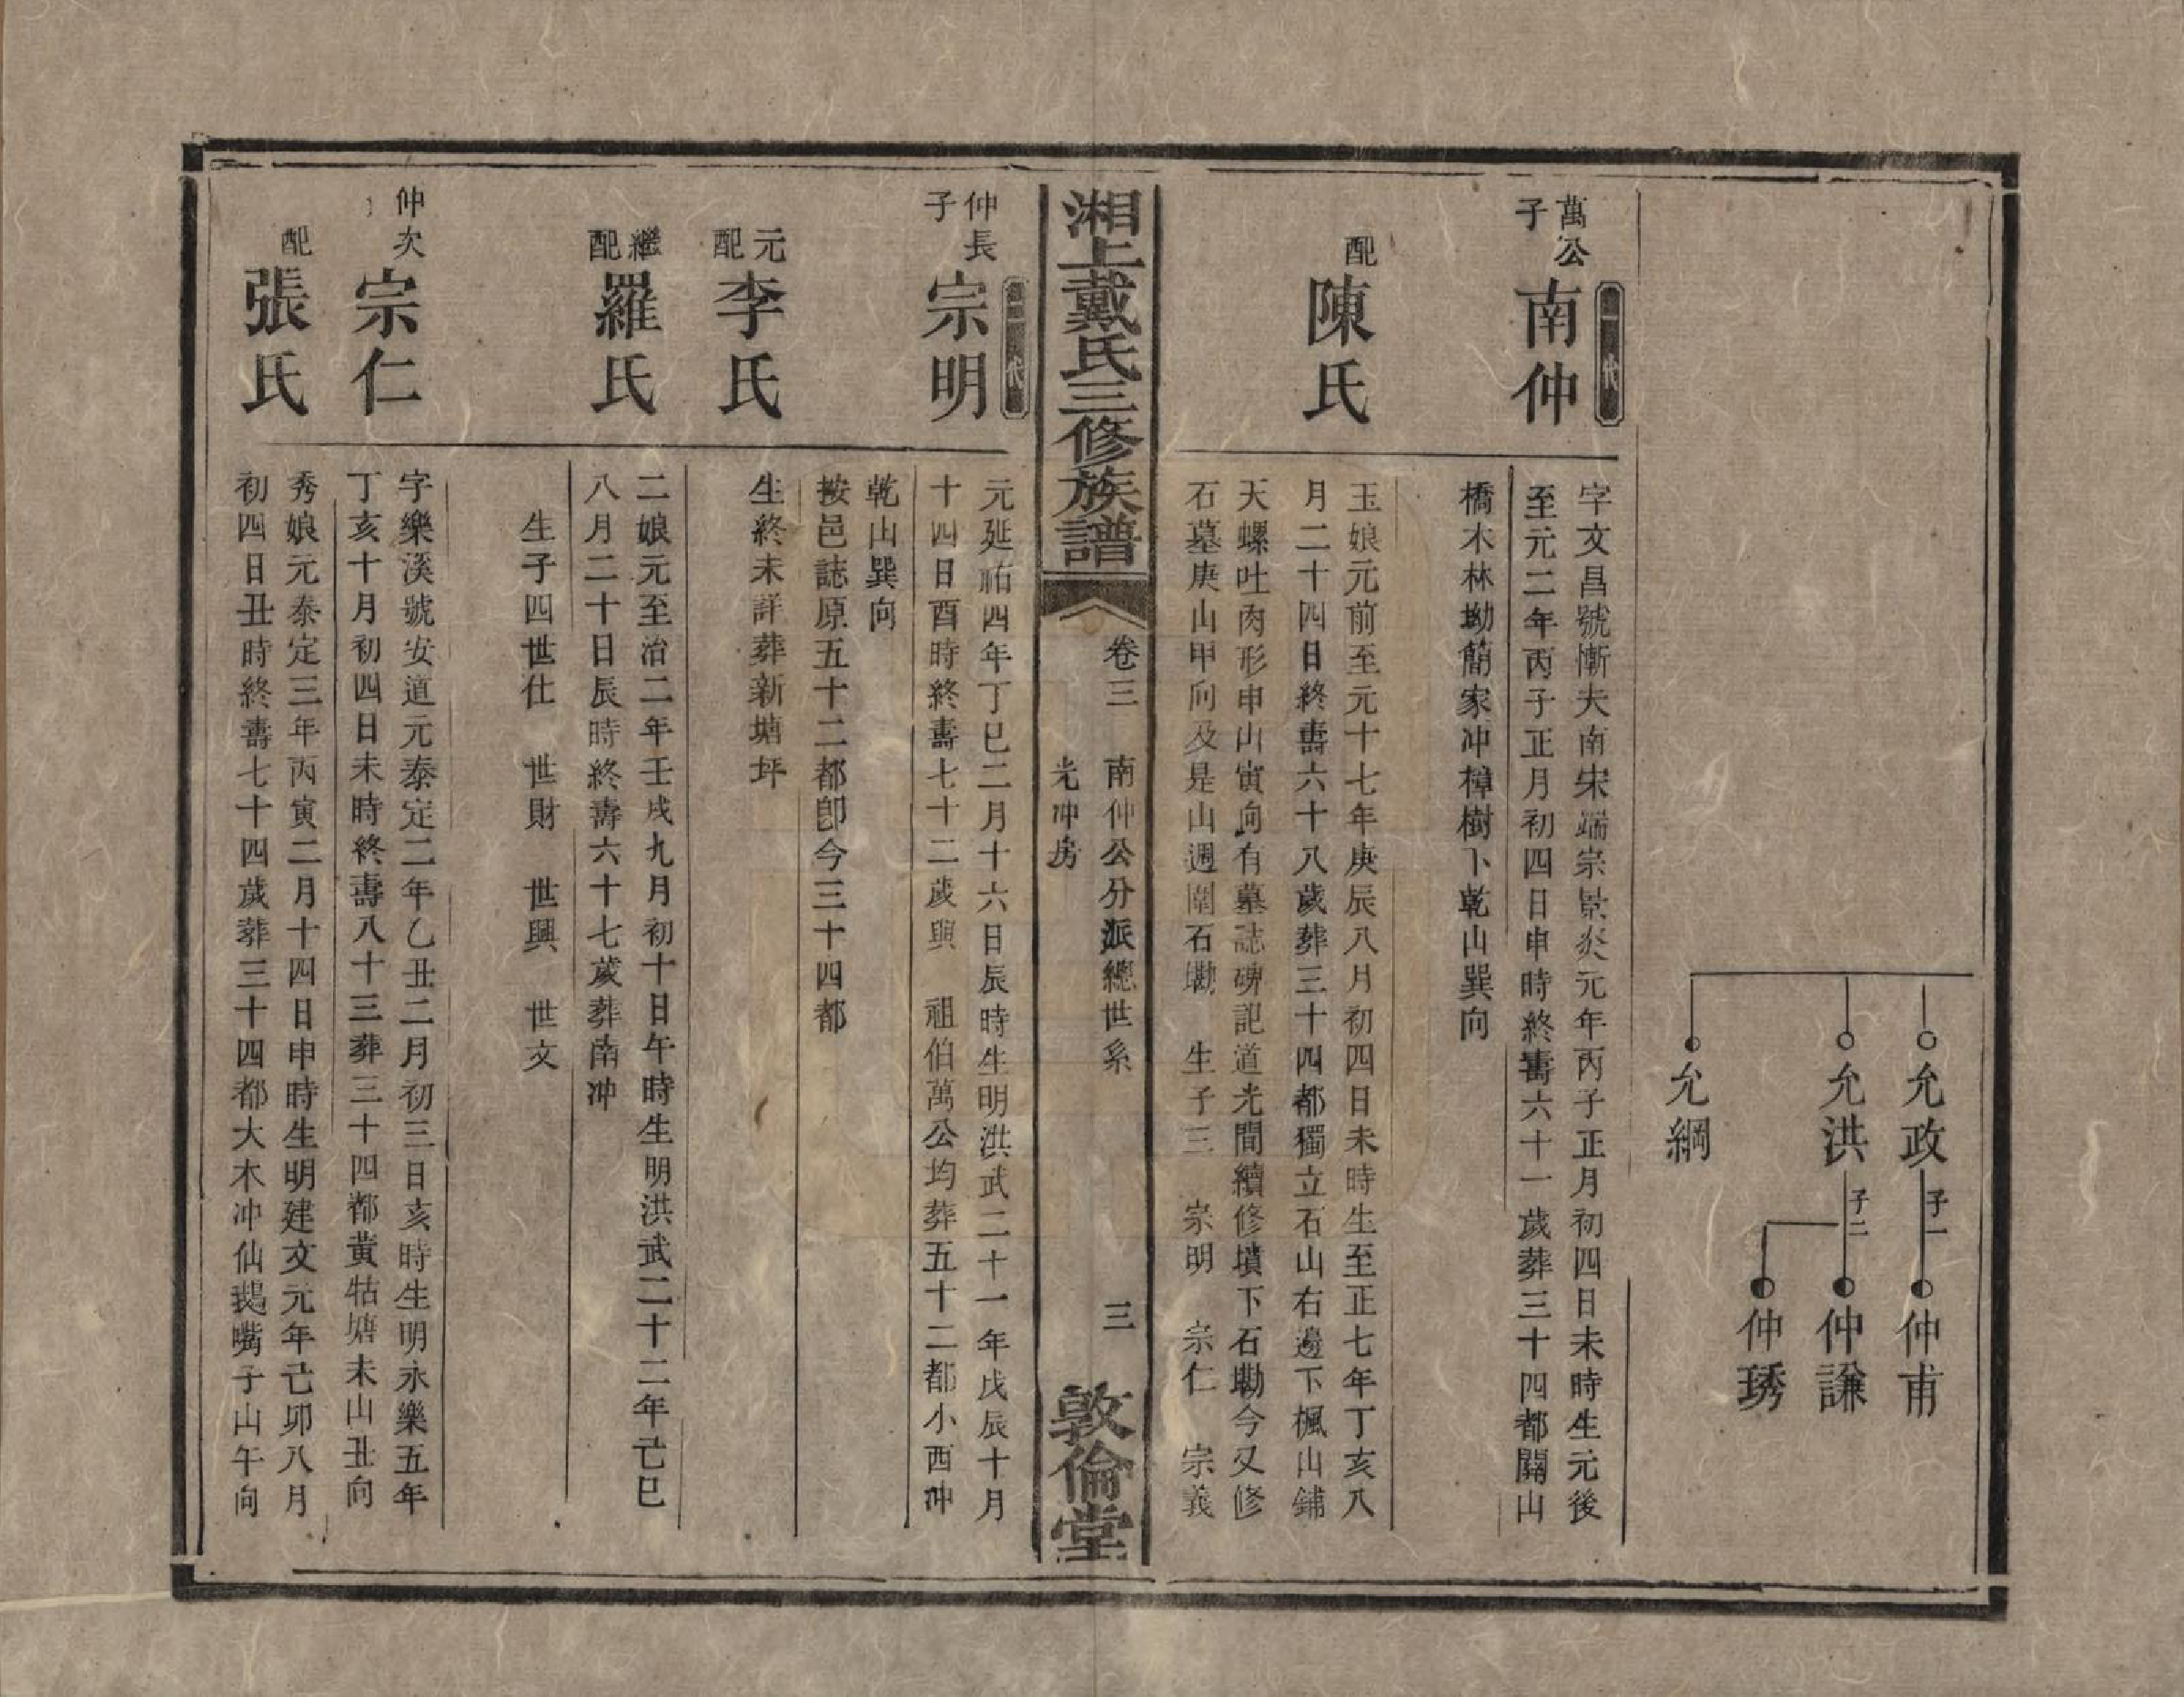 允政 子一 仲甫
允洪 子二 仲謙
仲琇
允綱
代
萬公
子
南仲
字文昌號慚夫南宋端宗景炎元年丙子正月初四日未時生元後
至元二年丙子正月初四日申時終壽六十一歲葬三十四都關山
橋木林坳簡家冲樟樹下乾山巽向
配
陳氏
玉娘元前至元十七年庚辰八月初四日未時生至正七年丁亥八
月二十四日終壽六十八歲葬三十四都獨立石山右邊下楓山鋪
天螺吐肉形申山寅向有墓誌碑記道光間續修墳下石墈今又修
石墓庚山甲向及是山週圍石墈 生子三 宗明 宗仁 宗義
湘上戴氏三修族譜
卷三 南仲公分派總世系 三
光冲房
敦倫堂
代
仲長
子
宗明
元延祐四年丁巳二月十六日辰時生明洪武二十一年戊辰十月
十四日酉時終壽七十二歲與 祖伯萬公均葬五十二都小西冲
乾山巽向
按邑誌原五十二都卽今三十四都
元
配
李氏
生終未詳葬新塘坪
繼
配
羅氏
二娘元至治二年壬戌九月初十日午時生明洪武二十二年己巳
八月二十日辰時終壽六十七歲葬南冲
生子四世仕 世財 世興 世文
仲次
子
宗仁
字樂溪號安道元泰定二年乙丑二月初三日亥時生明永樂五年
丁亥十月初四日未時終壽八十三葬三十四都黄牯塘未山丑向
配
張氏
秀娘元泰定三年丙寅二月十四日申時生明建文元年己卯八月
初四日丑時終壽七十四歲葬三十四都大木冲仙鵝嘴子山午向